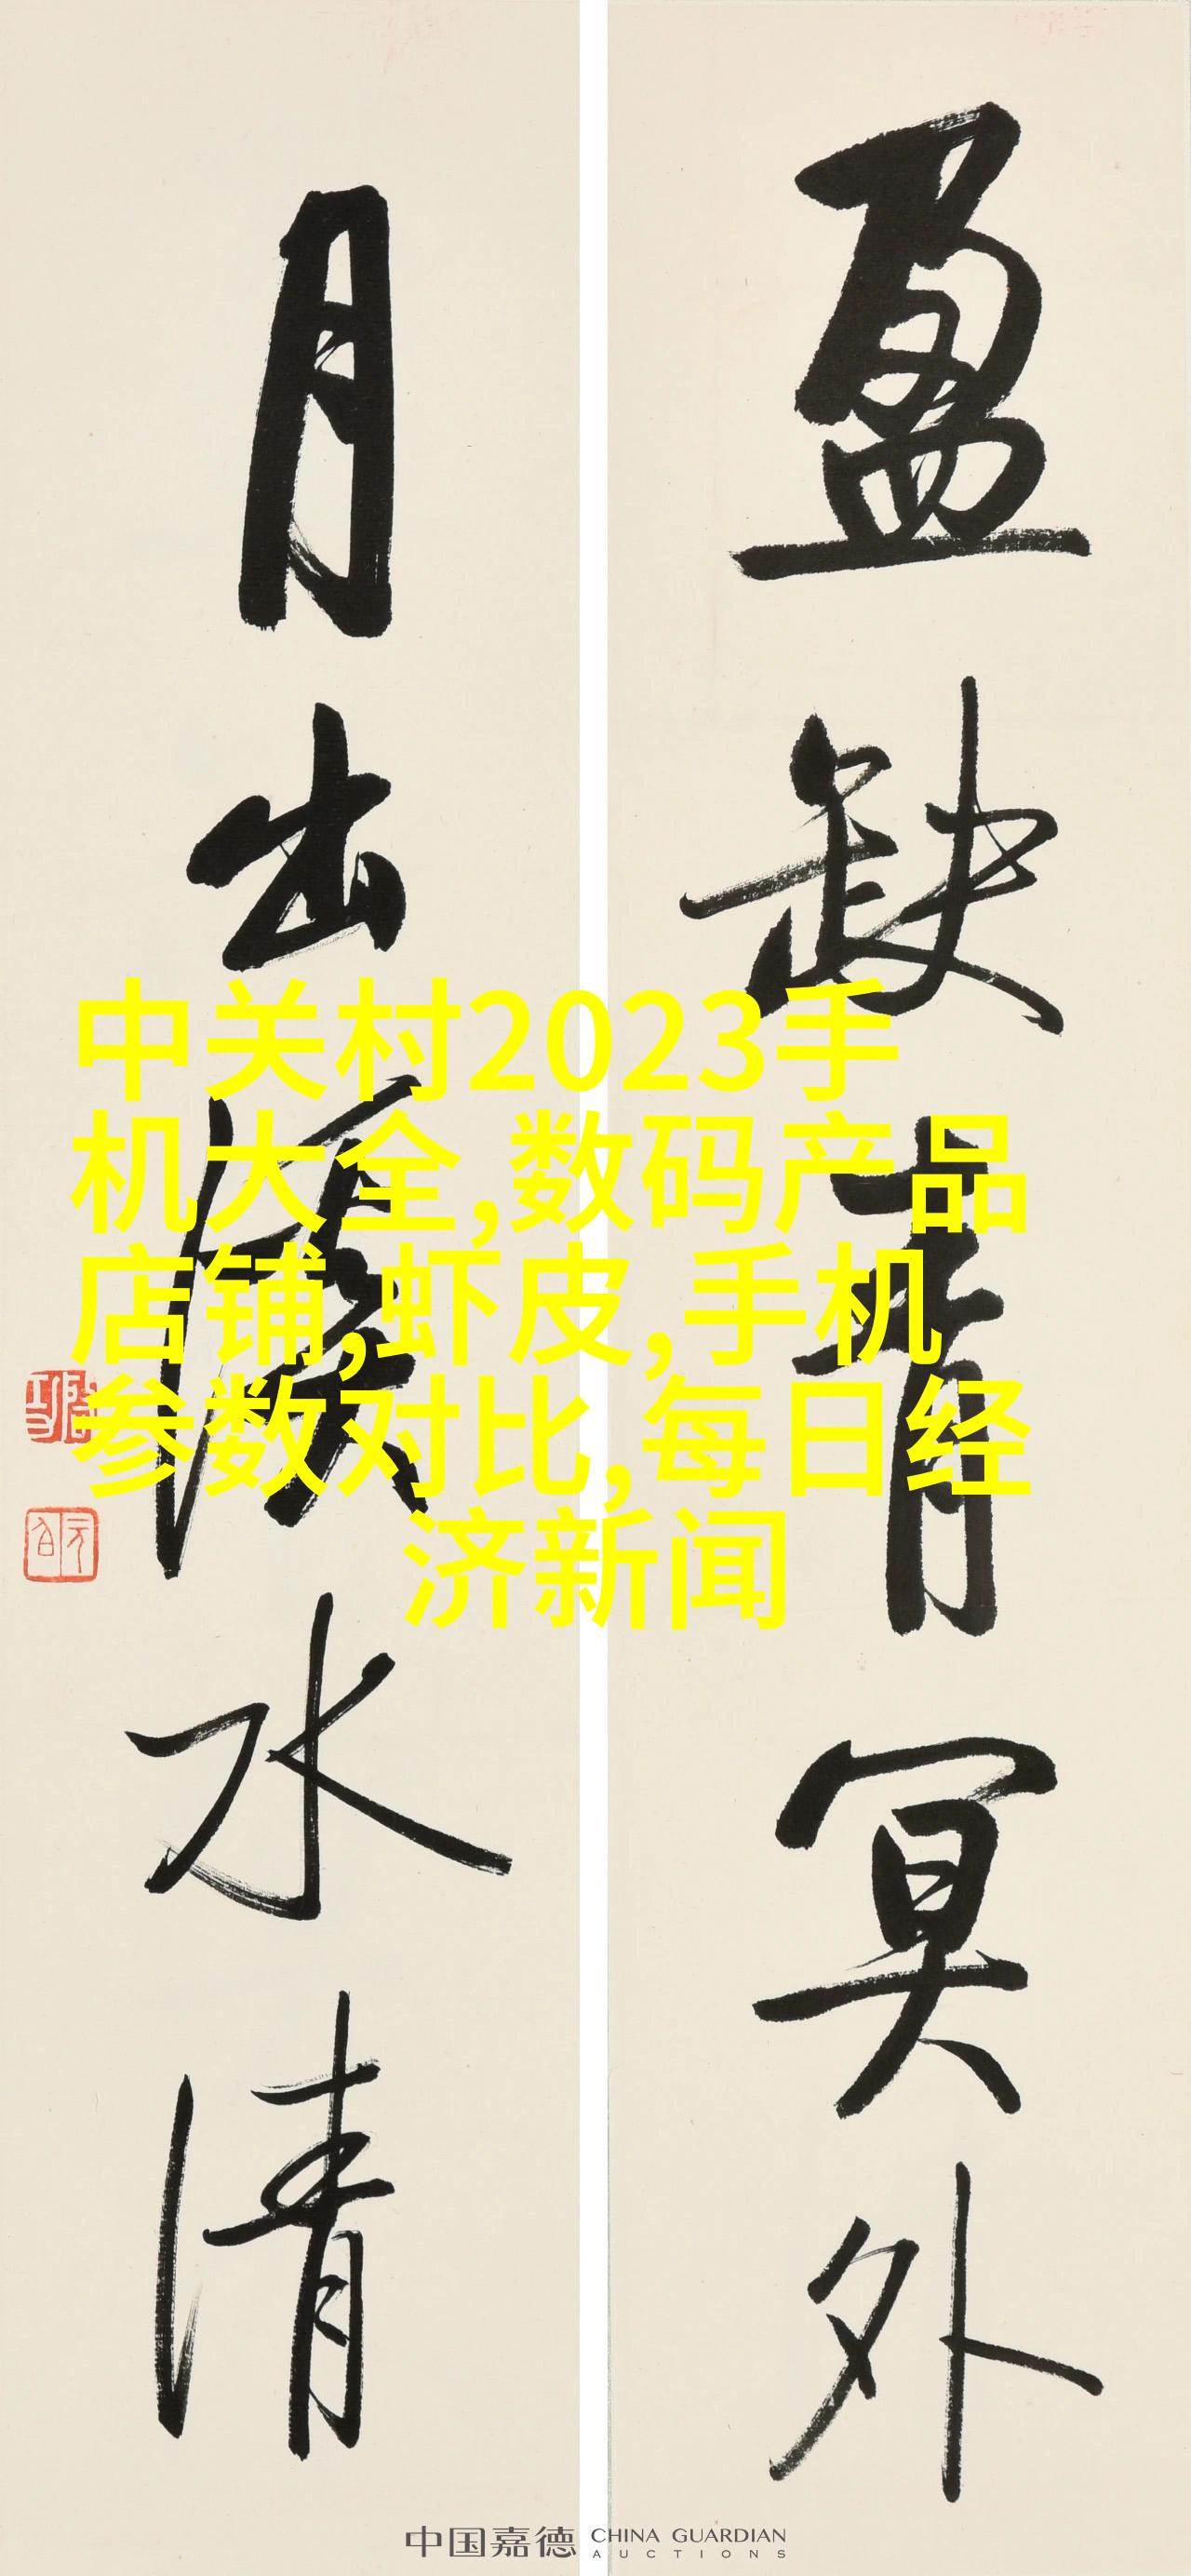 盈缺青冥外
月出溪水清
中关村2023手
机大全,数码产品
店铺,虾皮,手机
参数对比,每日经
济新闻
中国嘉德 CHINA GUARDIAN
AUCTIONS